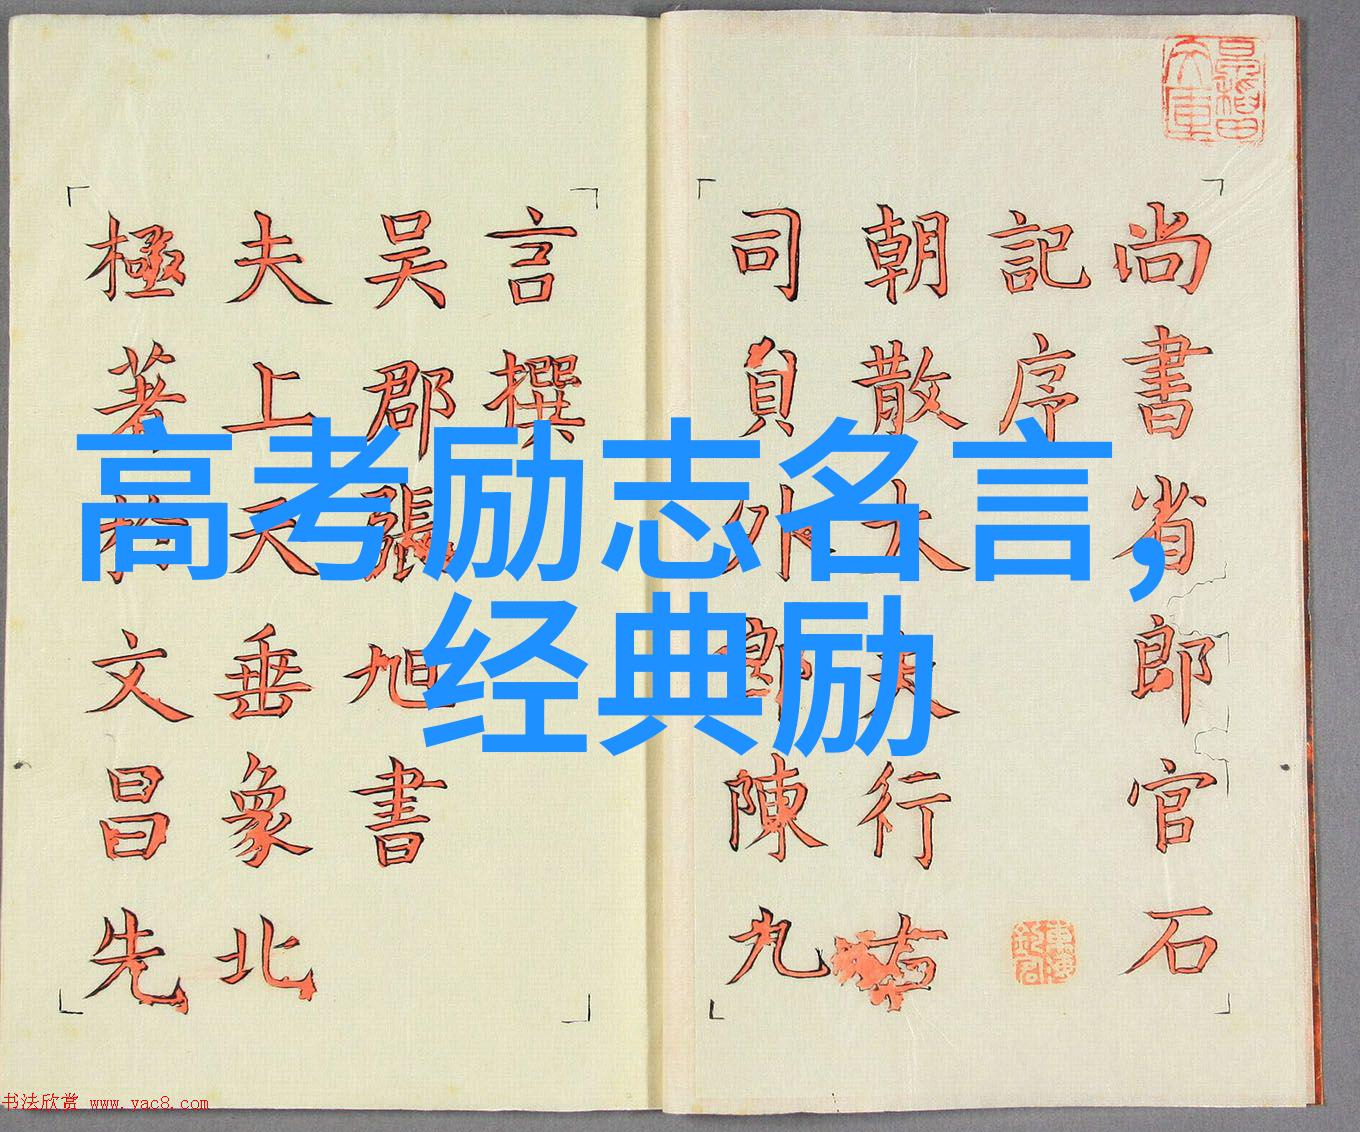 高考励志名言，
经典励
尚書省郎官石
記序
朝散大夫行右
司員外郎陳九
言撰
吴郡張旭書
夫上天垂象北
極著於文昌先
书法欣赏 www.yac8.com